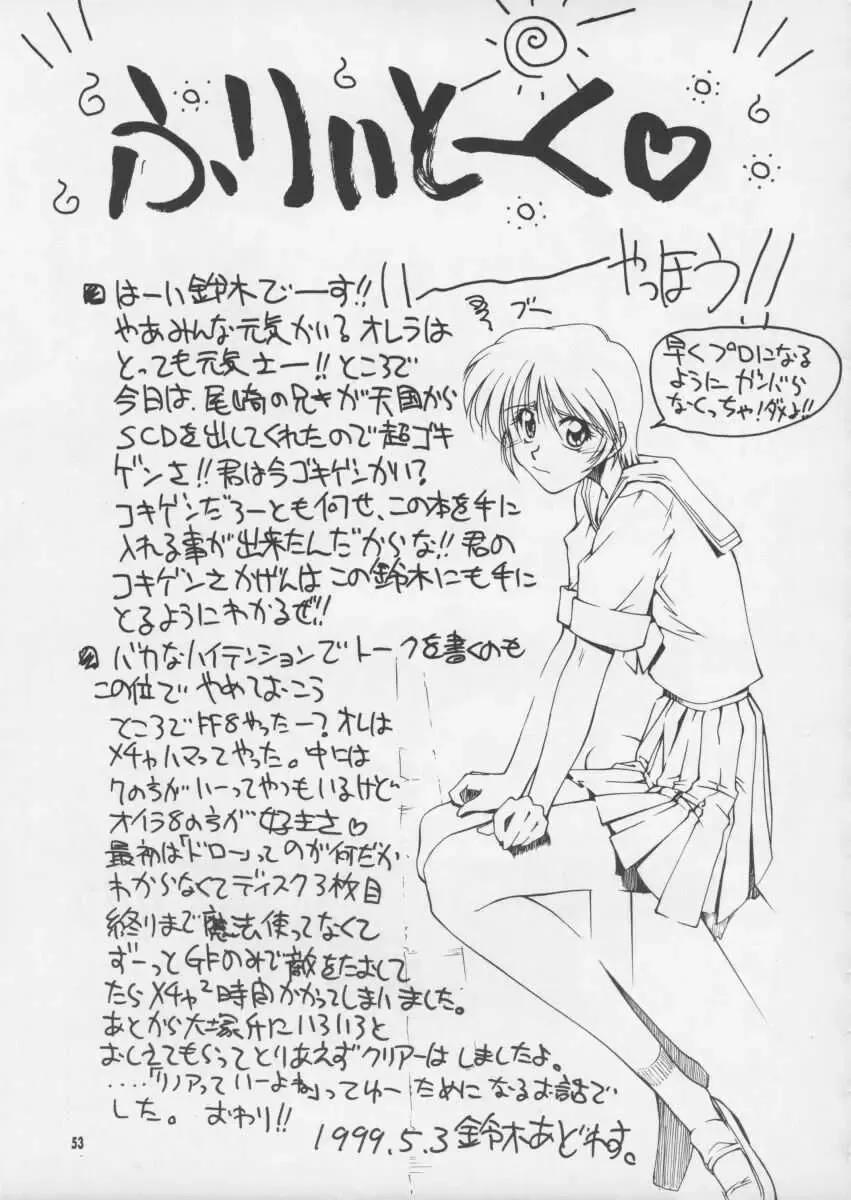 ふりぃとーく♡
やっほう!!
はーい鈴木でーす!!
やあみんな元気かい?オレラは
とっても元気さー!!ところで
今日は、尾崎の兄きが天国から
SCDを出してくれたので超ゴキ
ゲンさ!!君は今ゴキゲンかい?
ゴキゲンだろーとも何せ、この本を手に
入れる事が出来たんだからな!!君の
ゴキゲンさかげんはこの鈴木にも手に
とるようにわかるぜ!!
バカなハイテンションでトークを書くのも
この位でやめておこう
ところでFF8やったー?オレは
メチャハマってやった。中には
7のちがいーってやつもいるけど
オイラ8のちが好きさ♡
最初は「ドロー」ってのが何だか
わからなくてディスク3枚目
終りまで魔法使ってなくて
ずーっとGFのみで敵をたおして
たらメチャ²時間かかってしまいました。
あとから大塚氏にいろいろと
おしえてもらってとりあえずクリアーはしましたよ。
‥‥「リノアっていーよね」ってゆーためになるお話で
した。おわり!!
1999.5.3鈴木あどれす。
ブー
早くプロになる
ように ガンバら
なくっちゃ!ダメよ!!
53